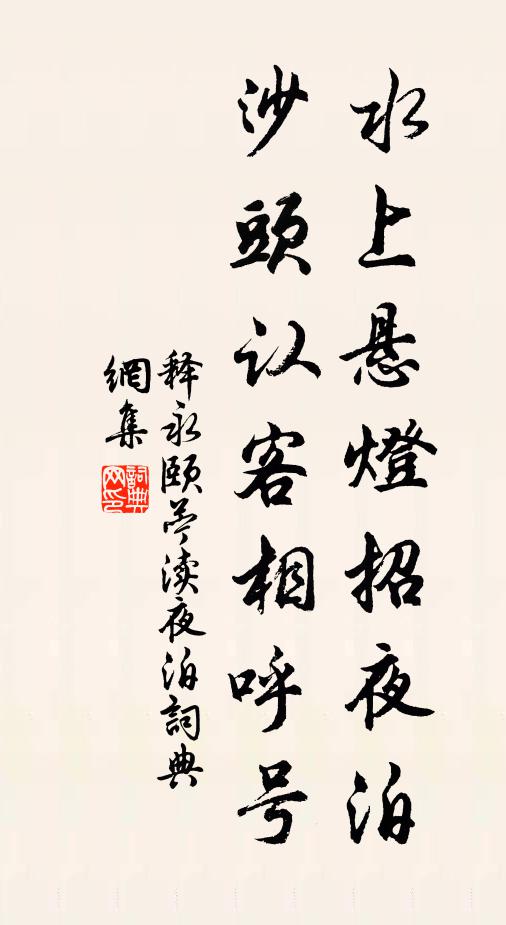 水上悬燈招夜泊
沙頭认客相呼号
释永颐苕渎夜泊詞典
網集
詞典網印